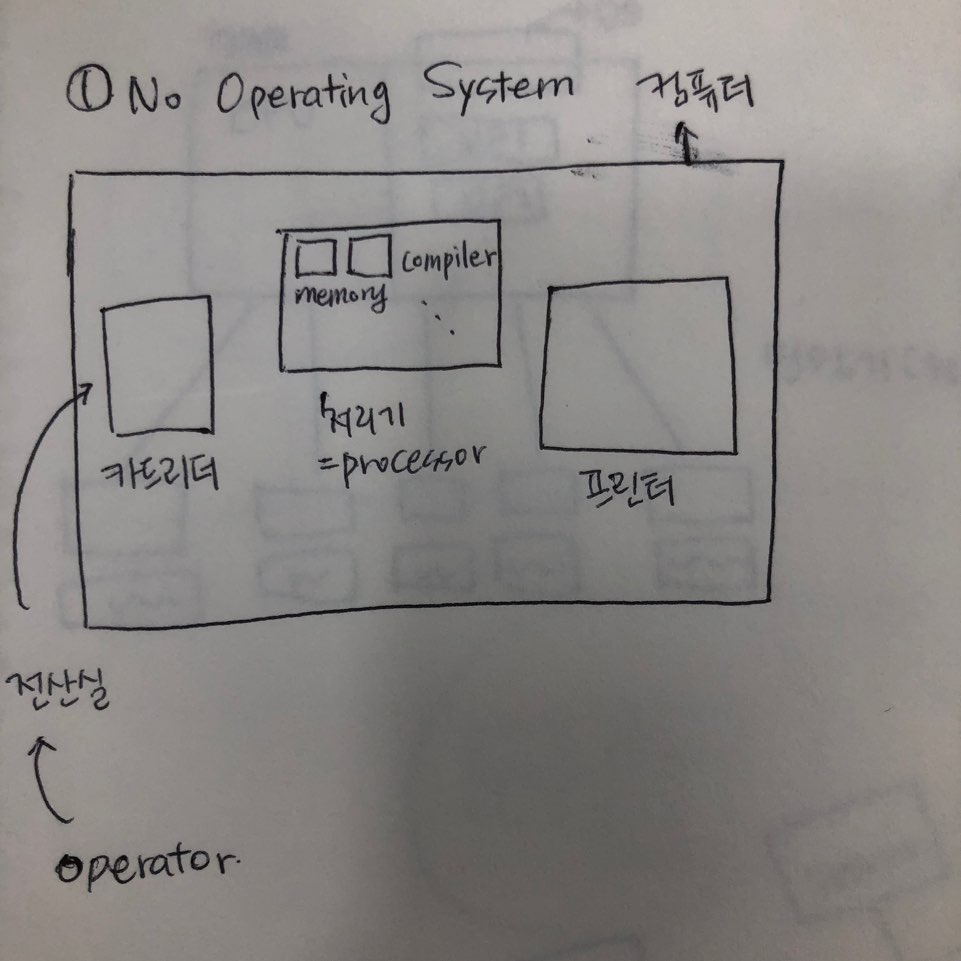 ① No Operating System 컴퓨터
compiler
memory
카드리더
처리기
=processor
프린터
전산실
operator.